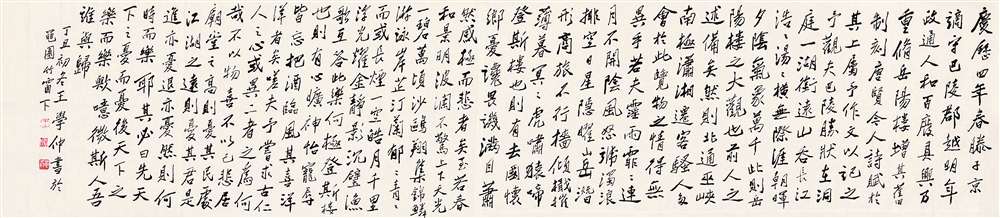 慶歷四年春滕子京
謫守巴陵郡越明年
政通人和百廢具興乃
重脩岳陽樓增其舊
制刻唐賢今人詩賦於
其上屬予作文以記之
予觀夫巴陵勝狀在洞
庭一湖銜遠山吞長江
浩浩湯湯橫無際涯朝暉
夕陰氣象萬千此則岳
陽樓之大觀也前人之
述備矣然則北通巫峽
南極瀟湘遷客騷人多
會於此覽物之情得無
異乎若夫霪雨霏霏連
月不開陰風怒號濁浪
排空日星隱耀山岳潛
形商旅不行檣傾楫摧
薄暮冥冥虎嘯猿啼
登斯樓也則有去國懷
鄉憂讒畏譏滿目蕭
然感極而悲者矣至若春
和景明波瀾不驚上下天光
一碧萬頃沙鷗翔集錦鱗
游泳岸芷汀蘭郁郁青青
而或長煙一空皓月千里
浮光耀金靜影沉璧漁
歌互答此樂何極登斯樓
也則有心曠神怡寵辱
皆忘把酒臨風其喜洋
洋者矣嗟夫予嘗求古仁
人之心或異二者之為何
哉不以物喜不以己悲居
廟堂之高則憂其民處
江湖之遠則憂其君是
進亦憂退亦憂然則何
時而樂耶其必曰先天
下之憂而憂後天下之
樂而樂歟噫微斯人吾
誰與歸
丁丑初冬王學仲書於
園竹窗下